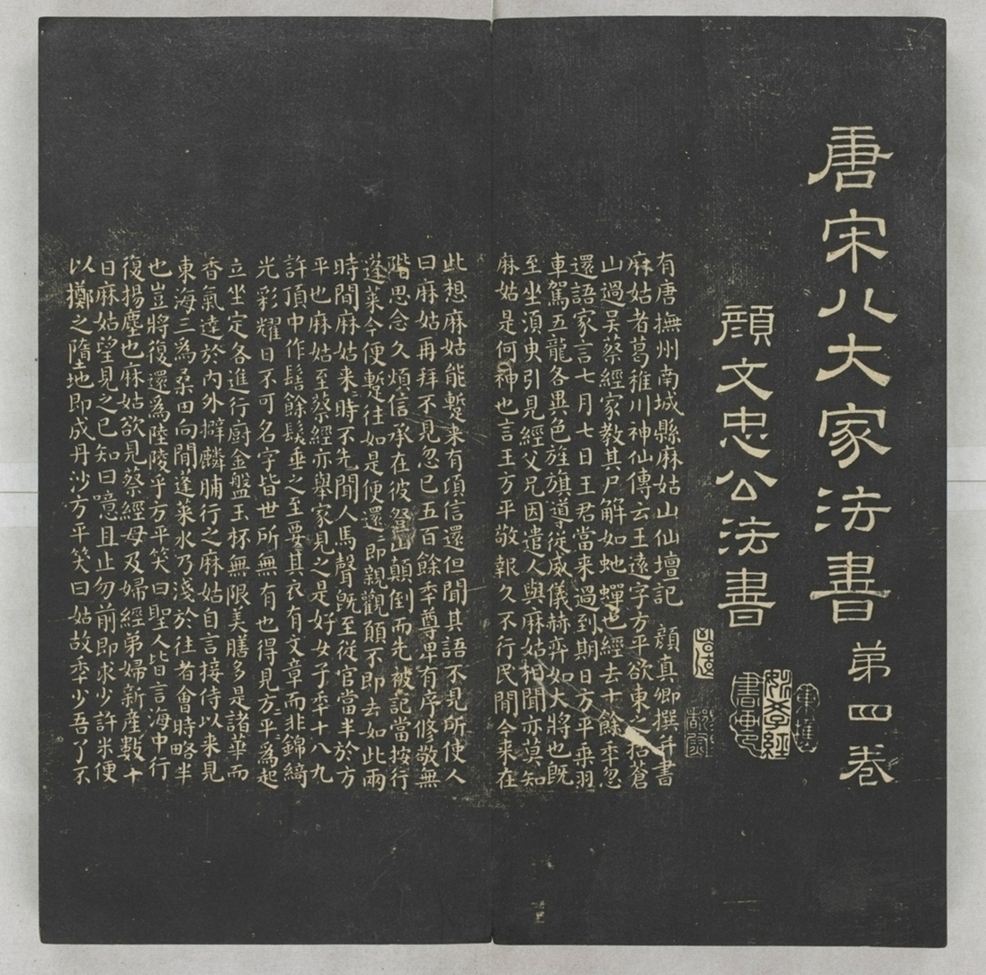 唐宋八大家法書第四卷
顏文忠公法書
有唐撫州南城縣麻姑山仙壇記 顏真卿撰并書
麻姑者葛稚川神仙傳云王遠字方平欲東之括蒼
山過吳蔡經家教其尸解如虵蟬也經去十餘年忽
還語家言七月七日王君當来過到期日方平乘羽
車駕五龍各異色旌旗導從威儀赫弈如大將也旣
至坐須臾引見經父兄因遣人與麻姑相聞亦莫知
麻姑是何神也言王方平敬報久不行民間今来在
此想麻姑能蹔来有頃信還但聞其語不見所使人
曰麻姑再拜不見忽已五百餘年尊卑有序修敬無
階思念久煩信承在彼登山顛倒而先被記當按行
蓬萊今便蹔往如是便還即親觀願不即去如此兩
時間麻姑来時不先聞人馬聲旣至從官當半於方
平也麻姑至蔡經亦舉家見之是好女子年十八九
許頂中作髻餘髮垂之至要其衣有文章而非錦綺
光彩耀日不可名字皆世所無有也得見方平為起
立坐定各進行廚金盤玉杯無限美膳多是諸華而
香氣達於內外擗麟脯行之麻姑自言接侍以来見
東海三為桑田向間蓬萊水乃淺於往者會時略半
也豈將復還為陸陵乎方平笑曰聖人皆言海中行
復揚塵也麻姑欲見蔡經母及婦經弟婦新產數十
日麻姑望見之已知曰噫且止勿前即求少許米便
以擲之墮地即成丹沙方平笑曰姑故年少吾了不